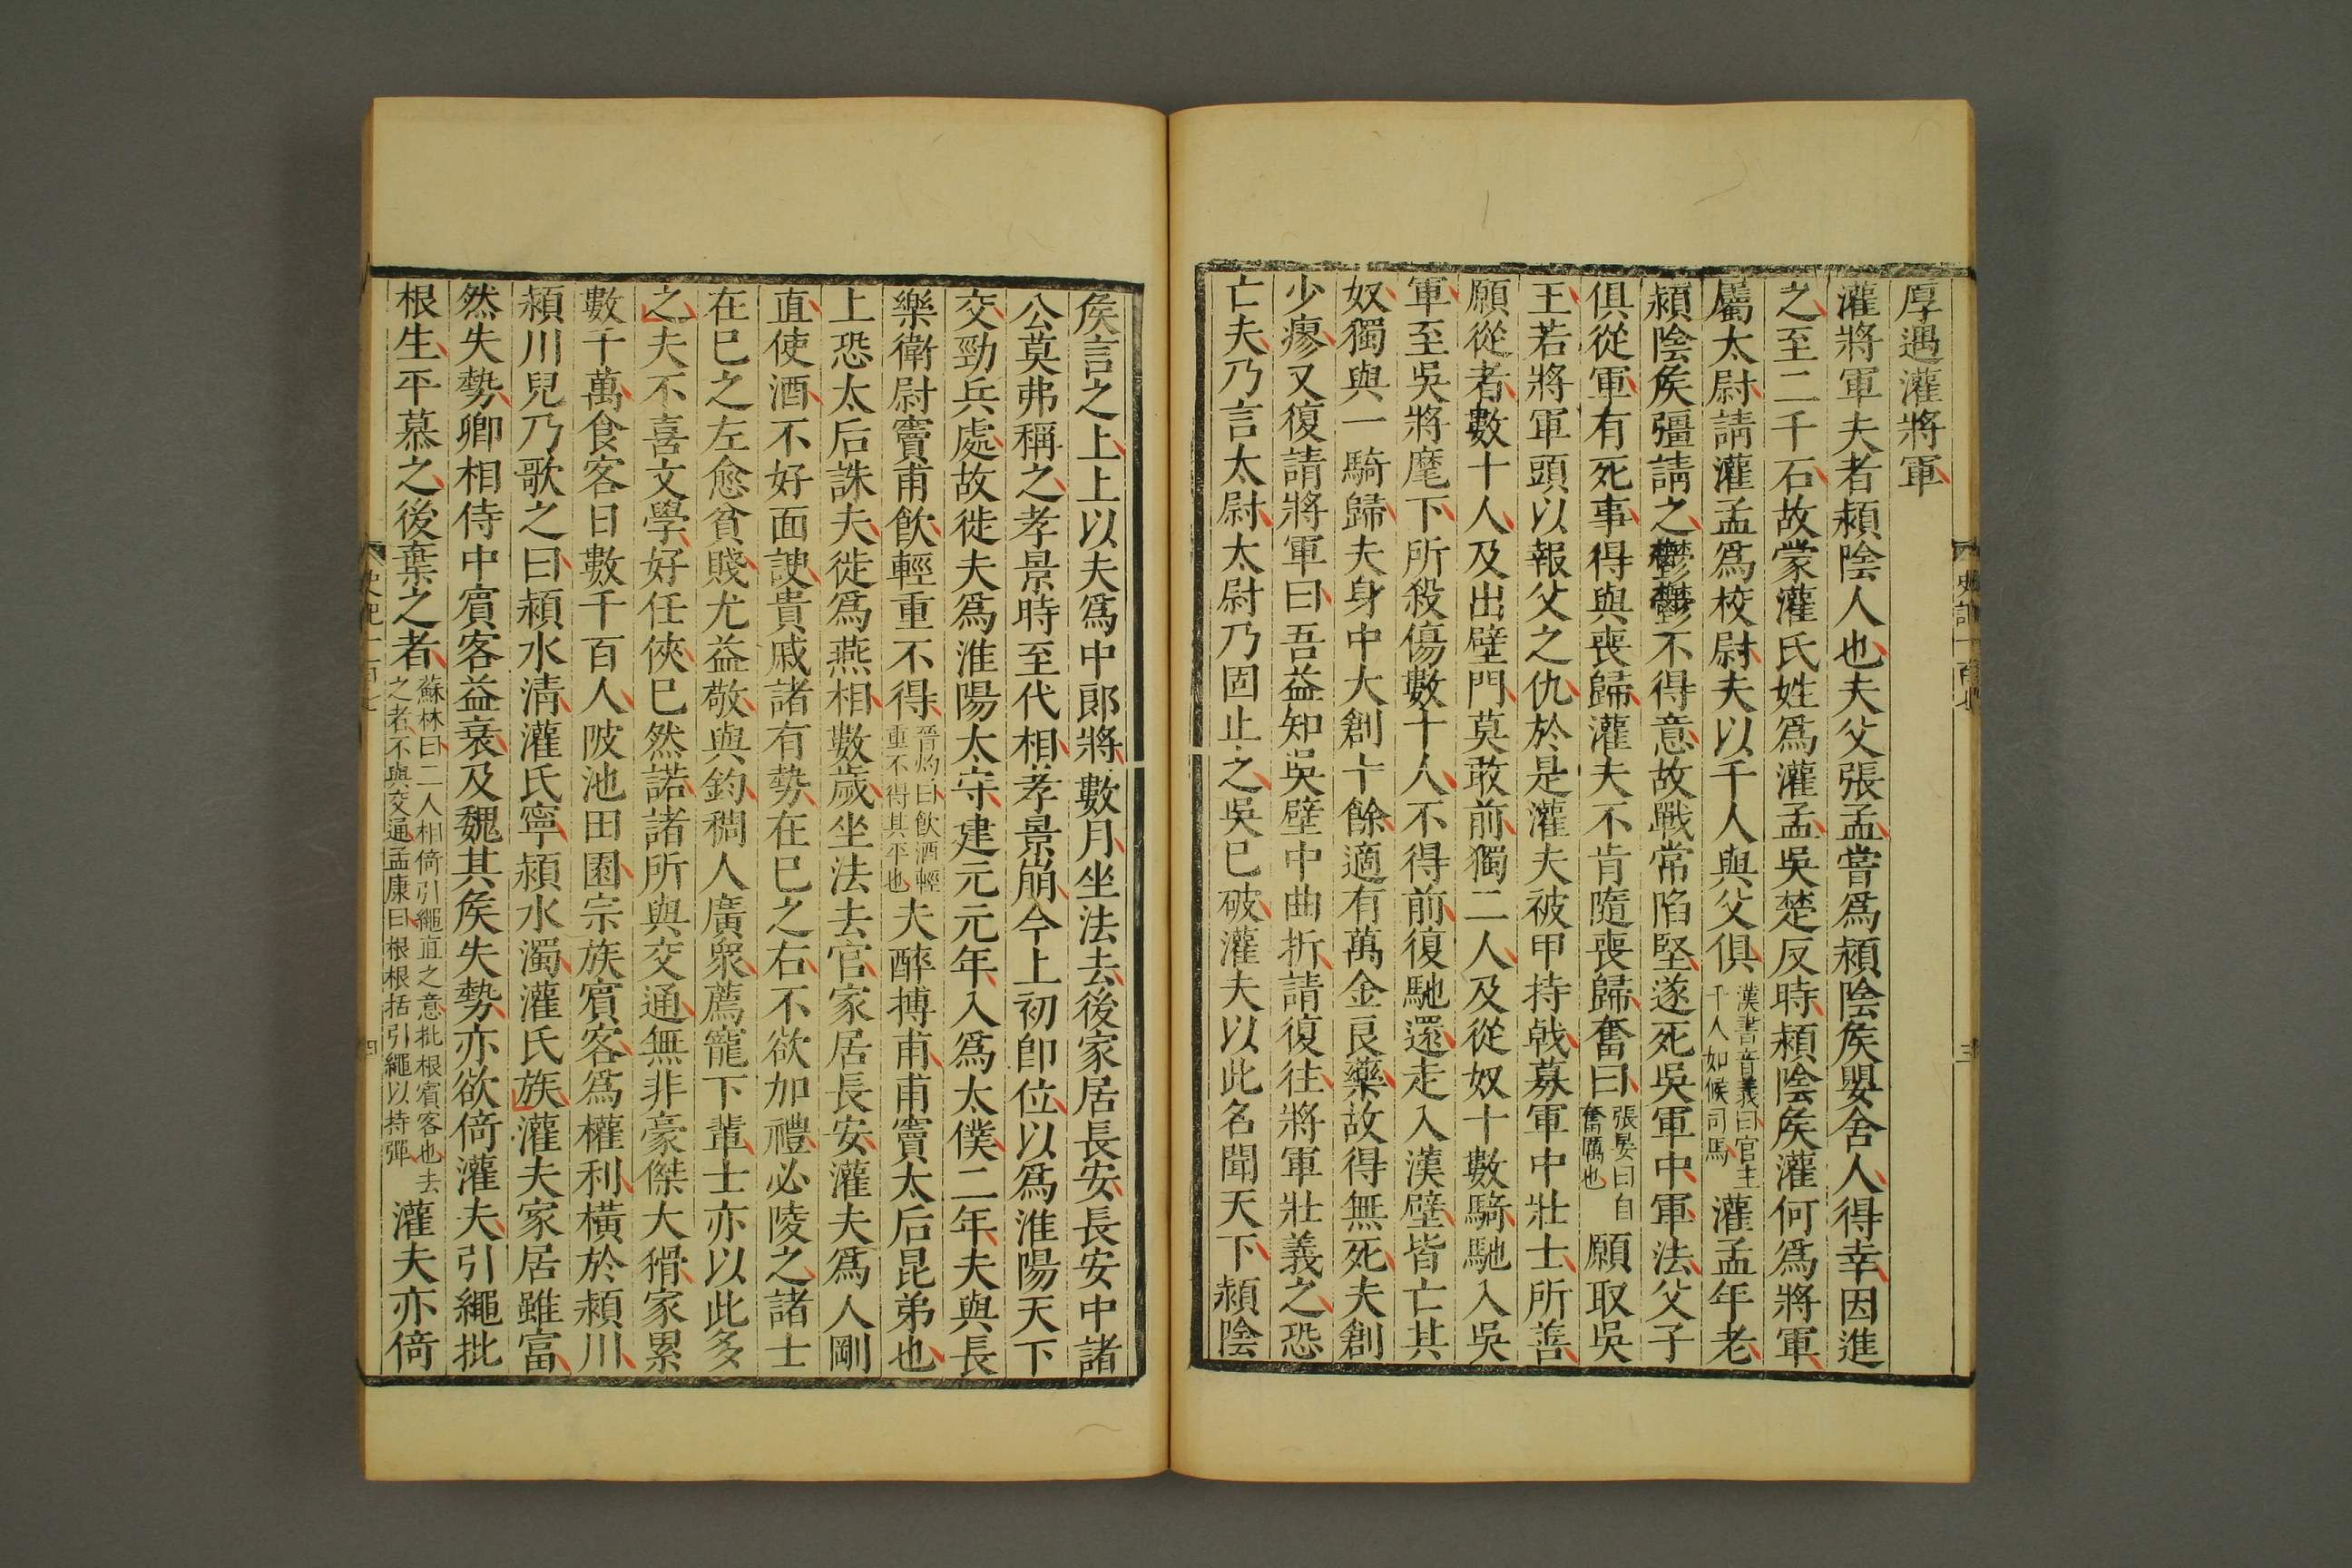 厚遇灌將軍
灌將軍夫者潁陰人也夫父張孟嘗爲潁陰矦嬰舍人得幸因進
之至二千石故蒙灌氏姓爲灌孟吳楚反時潁陰矦灌何爲將軍
屬太尉請灌孟爲校尉夫以千人與父俱漢書音義曰官主千人如候司馬灌孟年老
潁陰矦彊請之鬱鬱不得意故戰常陷堅遂死吳軍中軍法父子
俱從軍有死事得與喪歸灌夫不肯隨喪歸奮曰張晏曰自奮厲也願取吳
王若將軍頭以報父之仇於是灌夫被甲持戟募軍中壯士所善
願從者數十人及出壁門莫敢前獨二人及從奴十數騎馳入吳
軍至吳將麾下所殺傷數十人不得前復馳還走入漢壁皆亡其
奴獨與一騎歸夫身中大創十餘適有萬金良藥故得無死夫創
少瘳又復請將軍曰吾益知吳壁中曲折請復往將軍壯義之恐
亡夫乃言太尉太尉乃固止之吳已破灌夫以此名聞天下潁陰
史記一百七
三
矦言之上上以夫爲中郞將數月坐法去後家居長安長安中諸
公莫弗稱之孝景時至代相孝景崩今上初卽位以爲淮陽天下
交勁兵處故徙夫爲淮陽太守建元元年入爲太僕二年夫與長
樂衛尉竇甫飮輕重不得晉灼曰飮酒輕重不得其平也夫醉搏甫甫竇太后昆弟也
上恐太后誅夫徙爲燕相數歲坐法去官家居長安灌夫爲人剛
直使酒不好面諛貴戚諸有勢在已之右不欲加禮必陵之諸士
在已之左愈貧賤尤益敬與鈞稠人廣衆薦寵下輩士亦以此多
之夫不喜文學好任俠已然諾諸所與交通無非豪傑大猾家累
數千萬食客日數千百人陂池田園宗族賓客爲權利橫於潁川
潁川兒乃歌之曰潁水淸灌氏寧潁水濁灌氏族灌夫家居雖富
然失勢卿相侍中賓客益衰及魏其矦失勢亦欲倚灌夫引繩批
根生平慕之後棄之者蘇林曰二人相倚引繩直之意批根賓客也去之者不與交通孟康曰根根括引繩以持彈灌夫亦倚
史記一百七
四